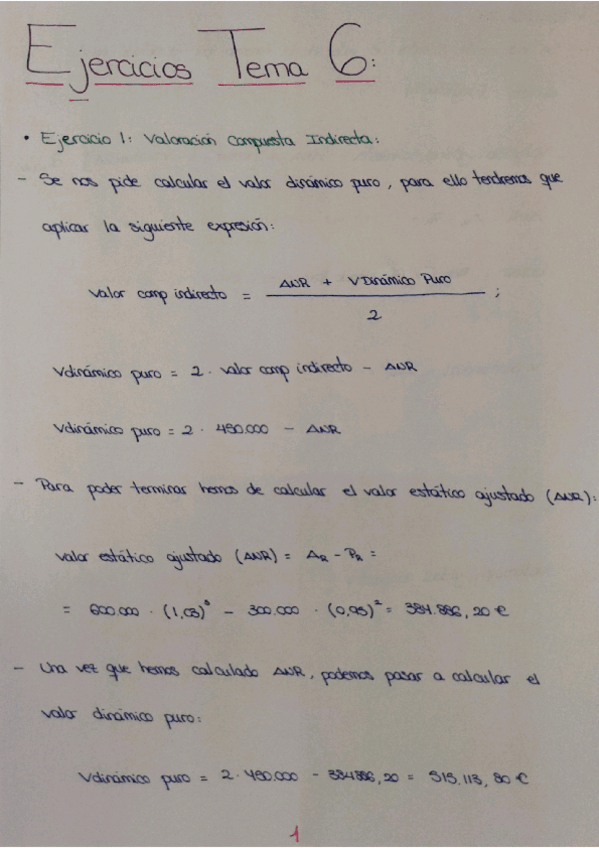 Ejercicios Tema 6:
• Ejercicio 1: Valoración Compuesta Indirecta:
- Se nos pide calcular el valor dinámico puro, para ello tendremos que
aplicar la siguiente expresión:
Valor comp indirecto = ANR + V Dinámico Puro / 2 ;
Vdinámico puro = 2 · valor comp indirecto - ANR
Vdinámico puro = 2 · 450.000 - ANR
- Para poder terminar hemos de calcular el valor estático ajustado (ANR):
Valor estático ajustado (ANR) = AR - PR =
= 600.000 · (1,03)³ - 300.000 · (0,95)² = 384.886,20 €
- Una vez que hemos calculado ANR, podemos pasar a calcular el
valor dinámico puro:
Vdinámico puro = 2 · 450.000 - 384886,20 = 515.113,80 €
1